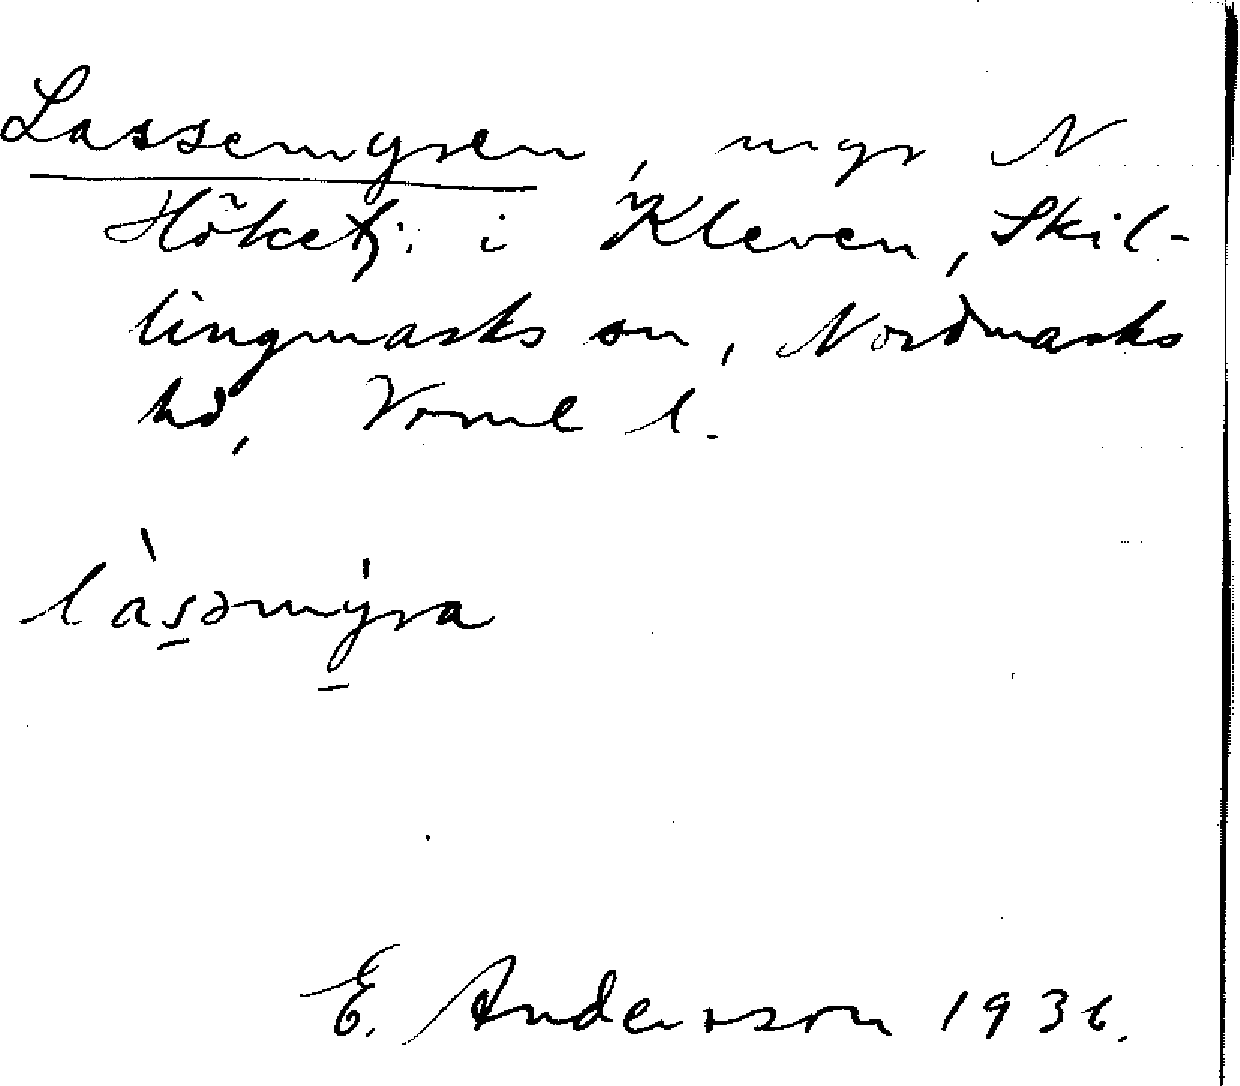 Lassemyren, myr N
Höketj. i Kleven, Skil-
lingmarks sn, Nordmarks
hd, Värml l.
làsəmýra
E. Andersson 1936.